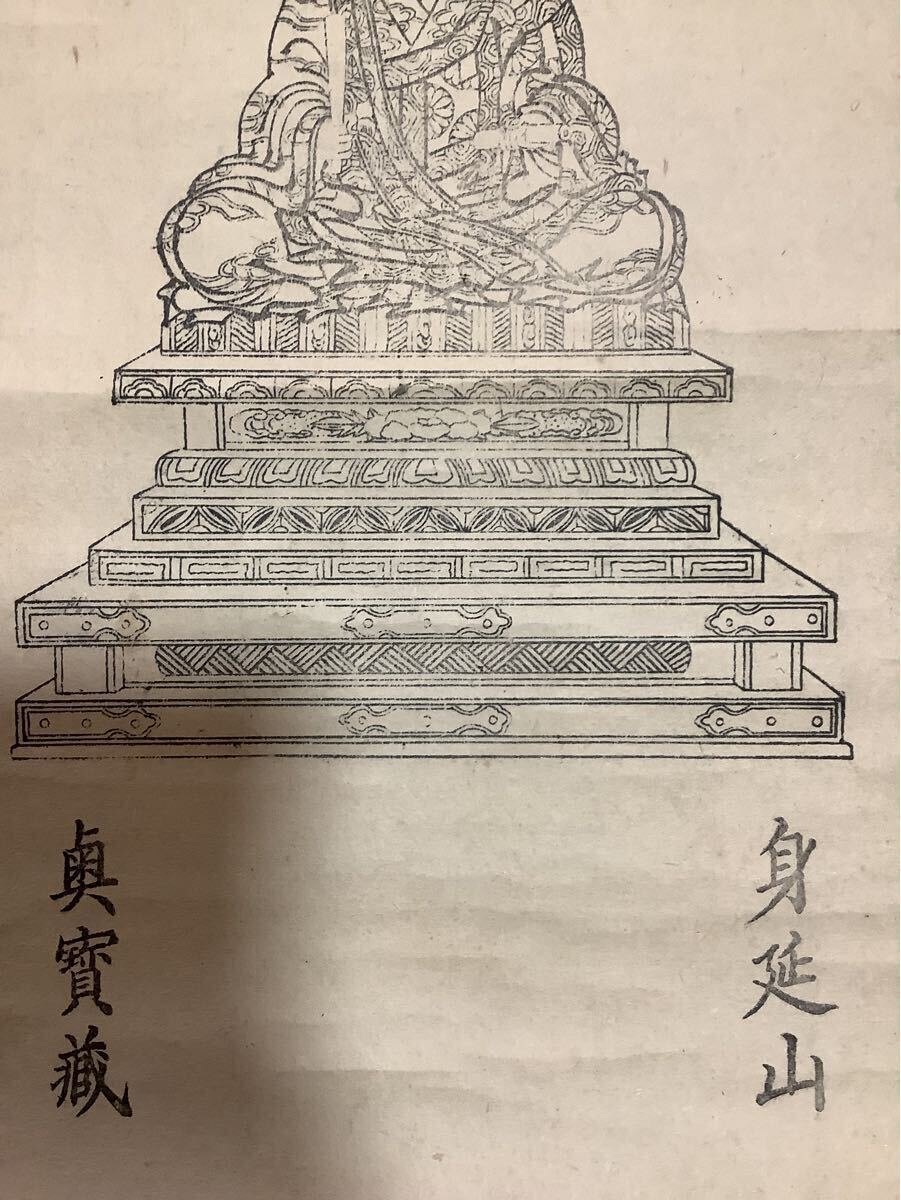 身延山
奥寳藏